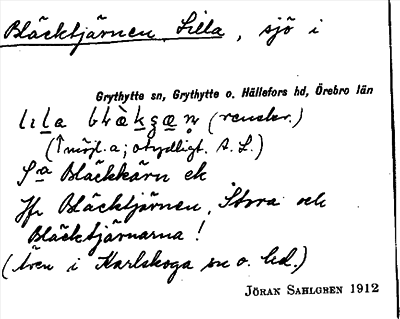 Bläcktjärnen, Lilla, sjö i
Grythytte sn, Grythytte o. Hällefors hd, Örebro län
lıla (renskr.)
(↑möjl. a; otydligt. A. L.)
Sa Bläckkärn ek
Jfr Bläcktjärnen, Stora och
Bläcktjärnarna!
(även i Karlskoga sn o. hd.)
JÖRAN SAHLGREN 1912